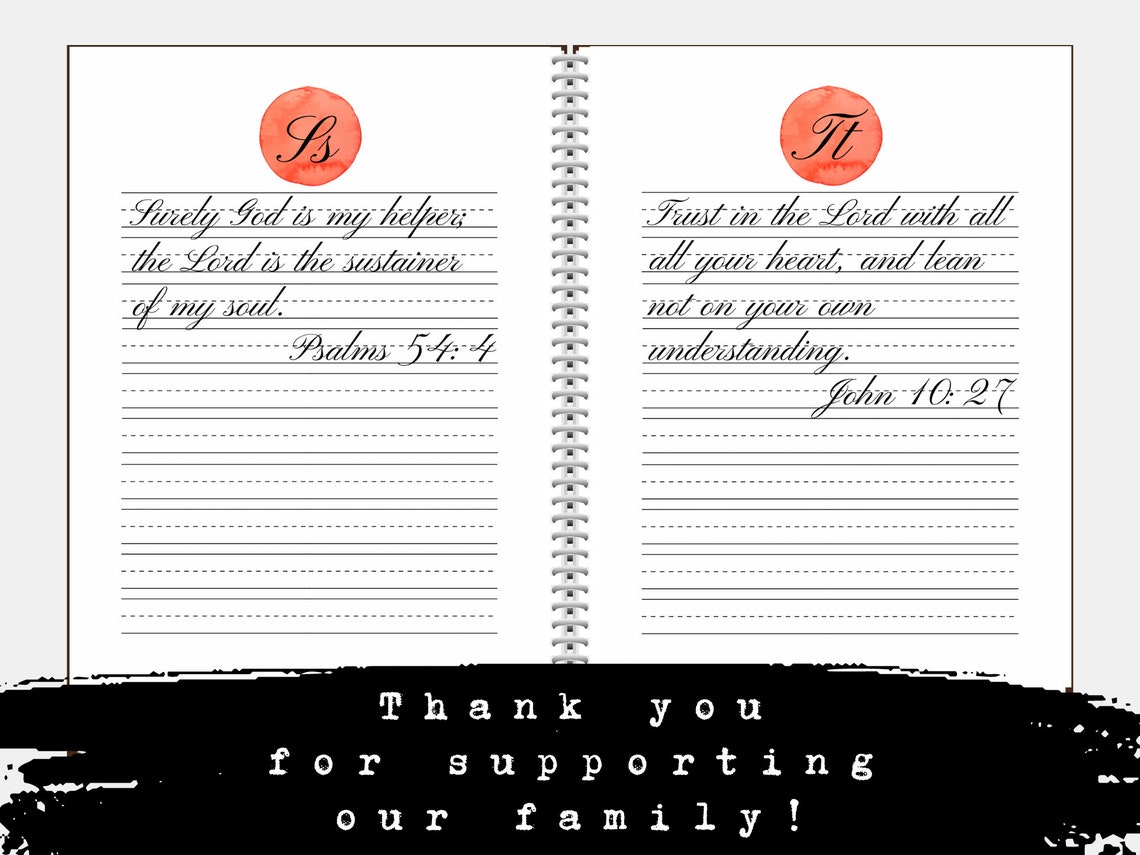 Ss
Surely God is my helper;
the Lord is the sustainer
of my soul.
Psalms 54: 4
Tt
Trust in the Lord with all
all your heart, and lean
not on your own
understanding.
John 10: 27
Thank you
for supporting
our family!